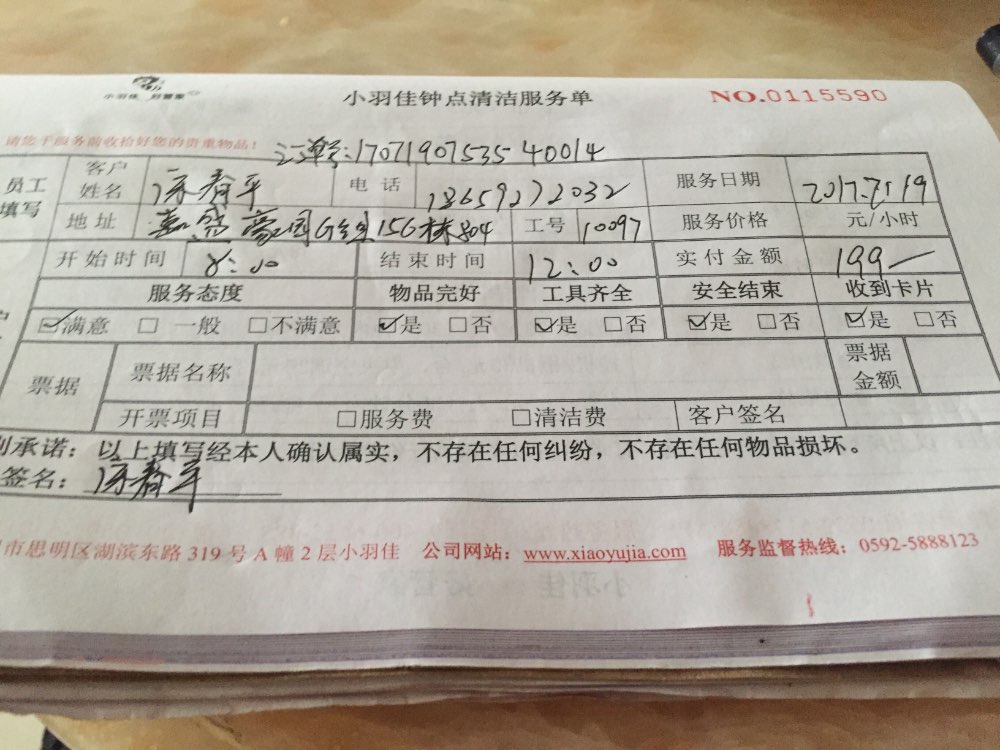 小羽佳 好管家
小羽佳钟点清洁服务单 NO.0115590
请您于服务前收拾好您的贵重物品!
订单号:1707190753540014
员工填写 客户姓名 春平 电话 18659272032 服务日期 2017.7.19
地址 嘉盛豪园G组156栋804 工号 10097 服务价格 元/小时
开始时间 8:00 结束时间 12:00 实付金额 199—
服务态度 物品完好 工具齐全 安全结束 收到卡片
☑满意 □一般 □不满意 ☑是 □否 ☑是 □否 ☑是 □否 ☑是 □否
票据 票据名称 票据金额
开票项目 □服务费 □清洁费 客户签名
承诺：以上填写经本人确认属实，不存在任何纠纷，不存在任何物品损坏。
签名： 春平
市思明区湖滨东路 319 号 A 幢 2 层小羽佳 公司网站：www.xiaoyujia.com 服务监督热线：0592-5888123